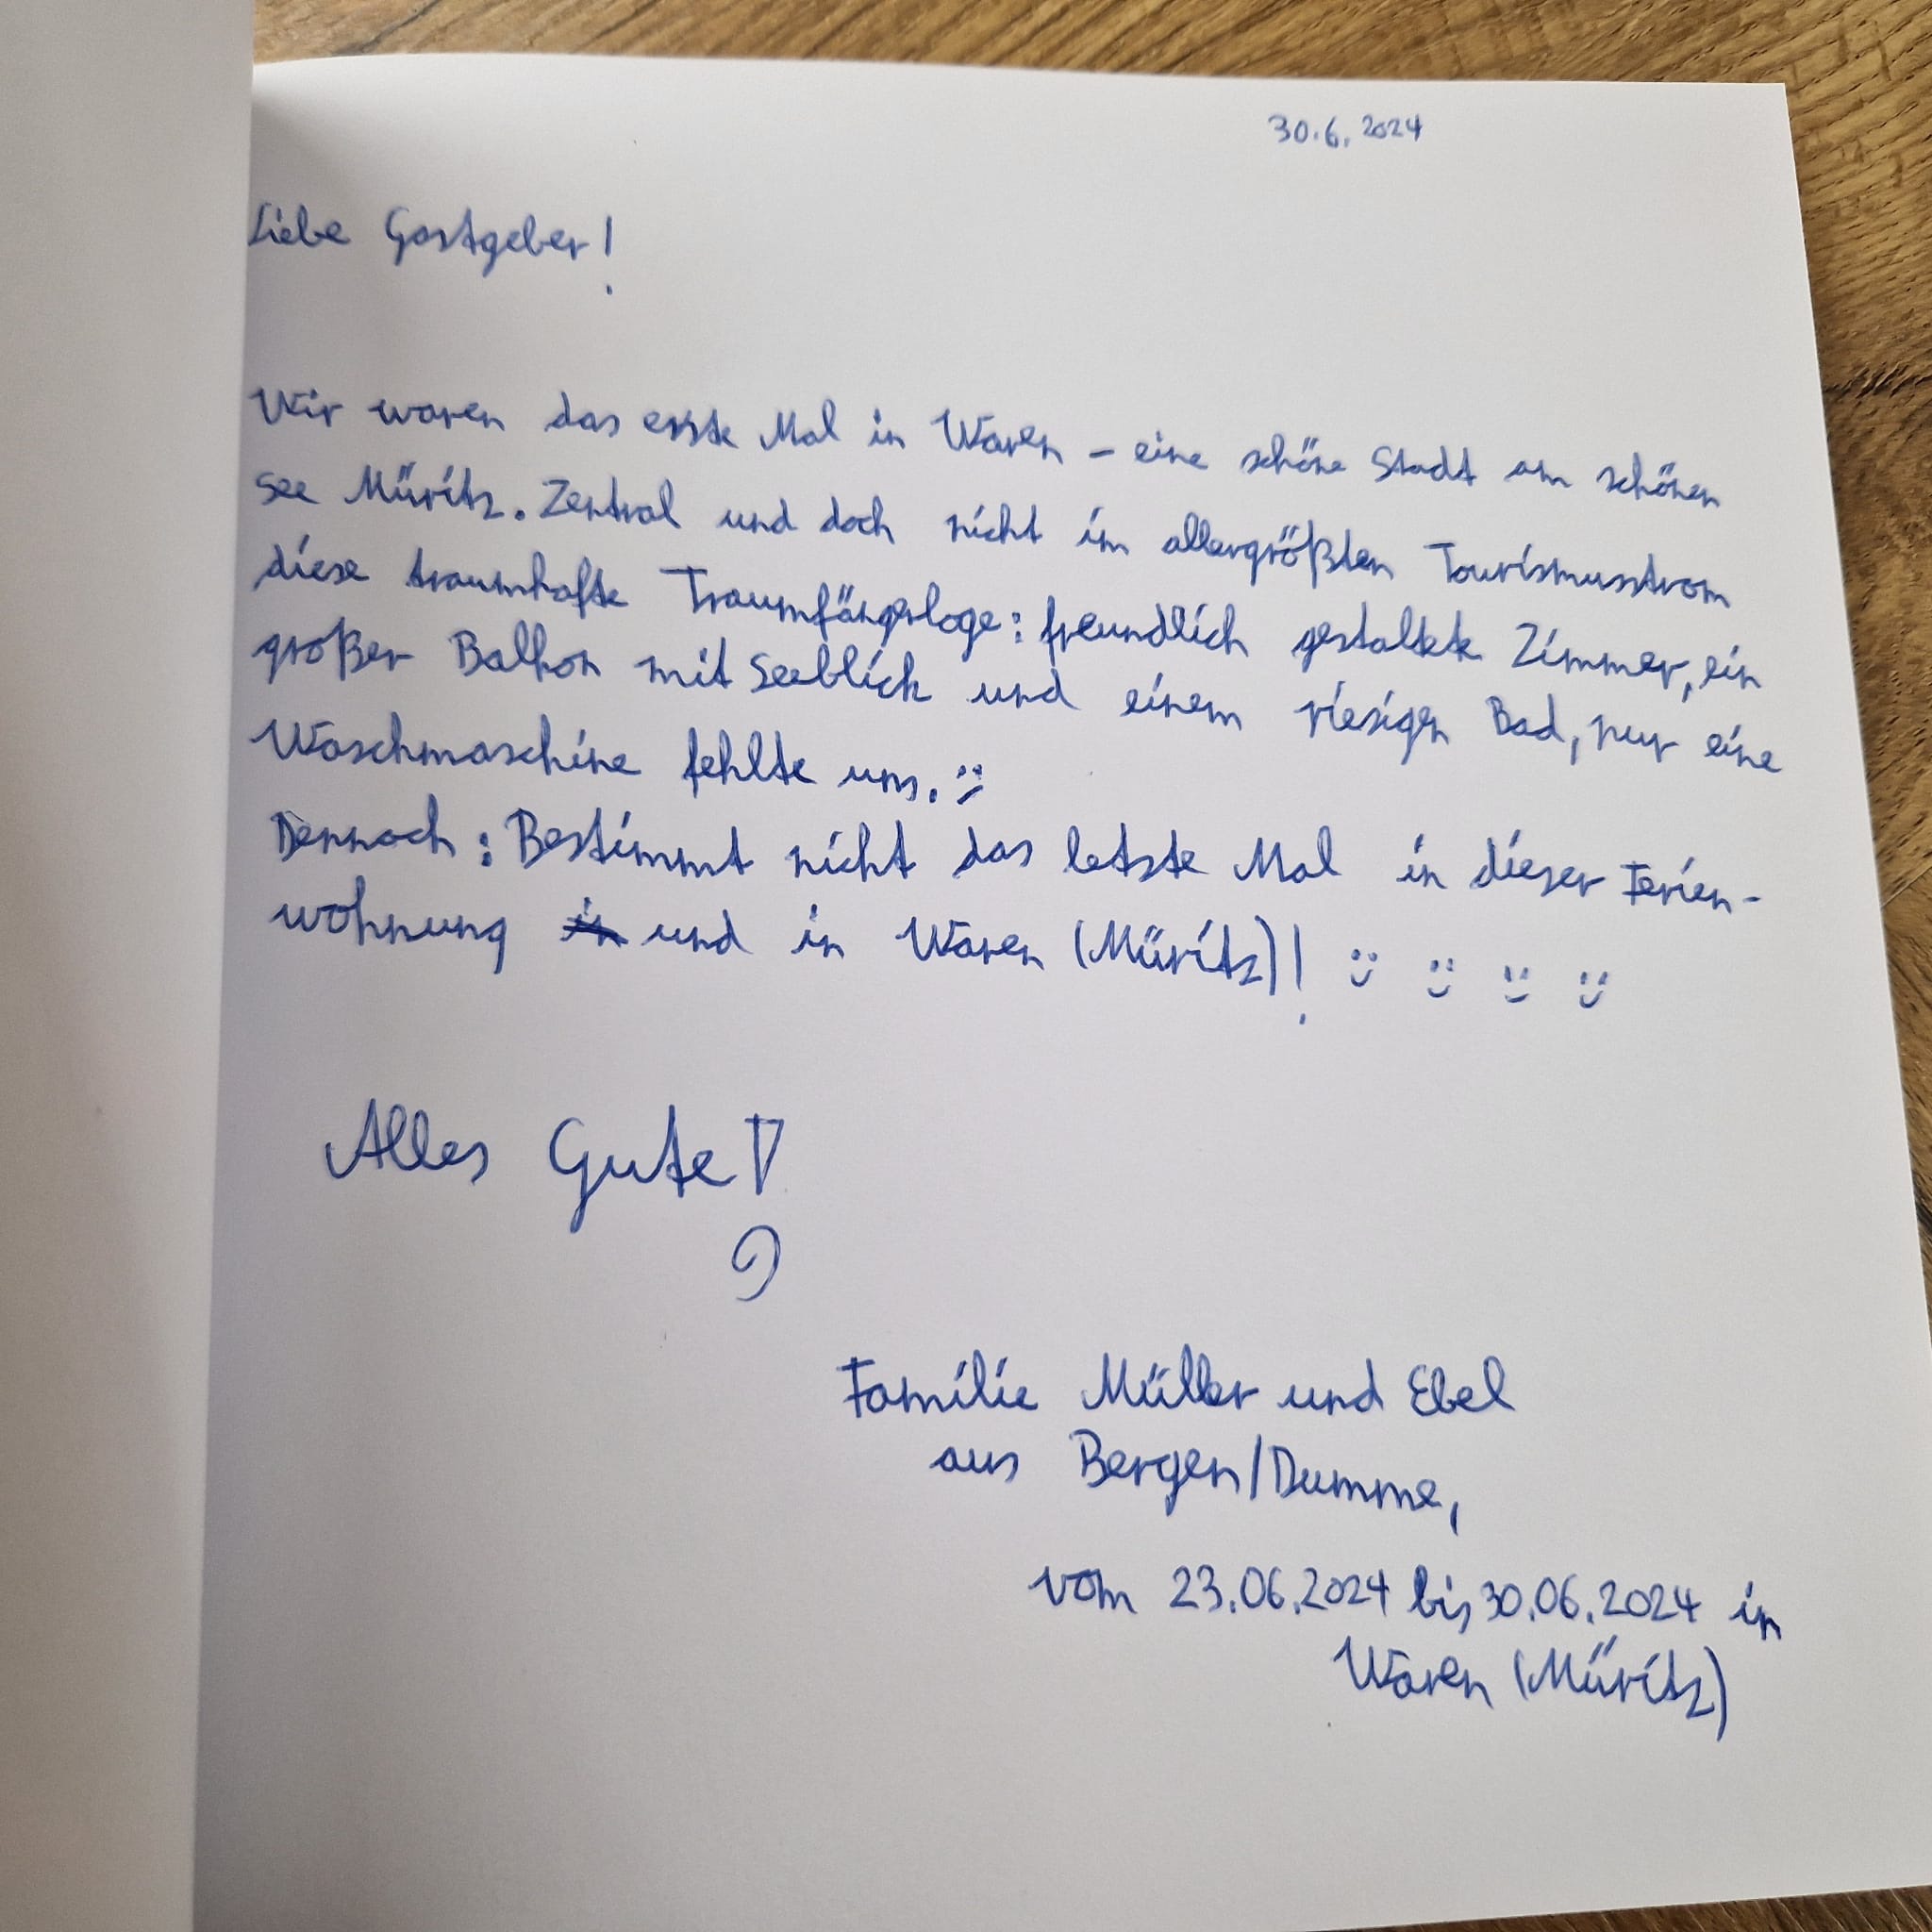 30.6.2024
Liebe Gastgeber!
Wir waren das erste Mal in Waren – eine schöne Stadt am schönen
See Müritz. Zentral und doch nicht im allergrößten Tourismusstrom
diese traumhafte Traumfängerloge: freundlich gestaltete Zimmer, ein
großer Balkon mit Seeblick und einem riesigen Bad, nur eine
Waschmaschine fehlte uns. :/
Dennoch: Bestimmt nicht das letzte Mal in dieser Ferien-
wohnung und in Waren (Müritz)! :) :) :) :)
Alles Gute!
Familie Müller und Ebel
aus Bergen/Dumme,
vom 23.06.2024 bis 30.06.2024 in
Waren (Müritz)